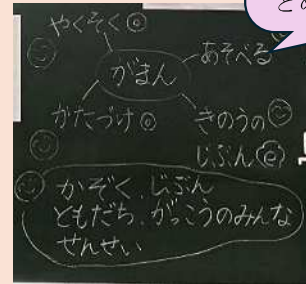 やくそく◎
あそべる
がまん
かたづけ◎
きのうの
じぶん
かぞく、じぶん
ともだち、がっこうのみんな
せんせい